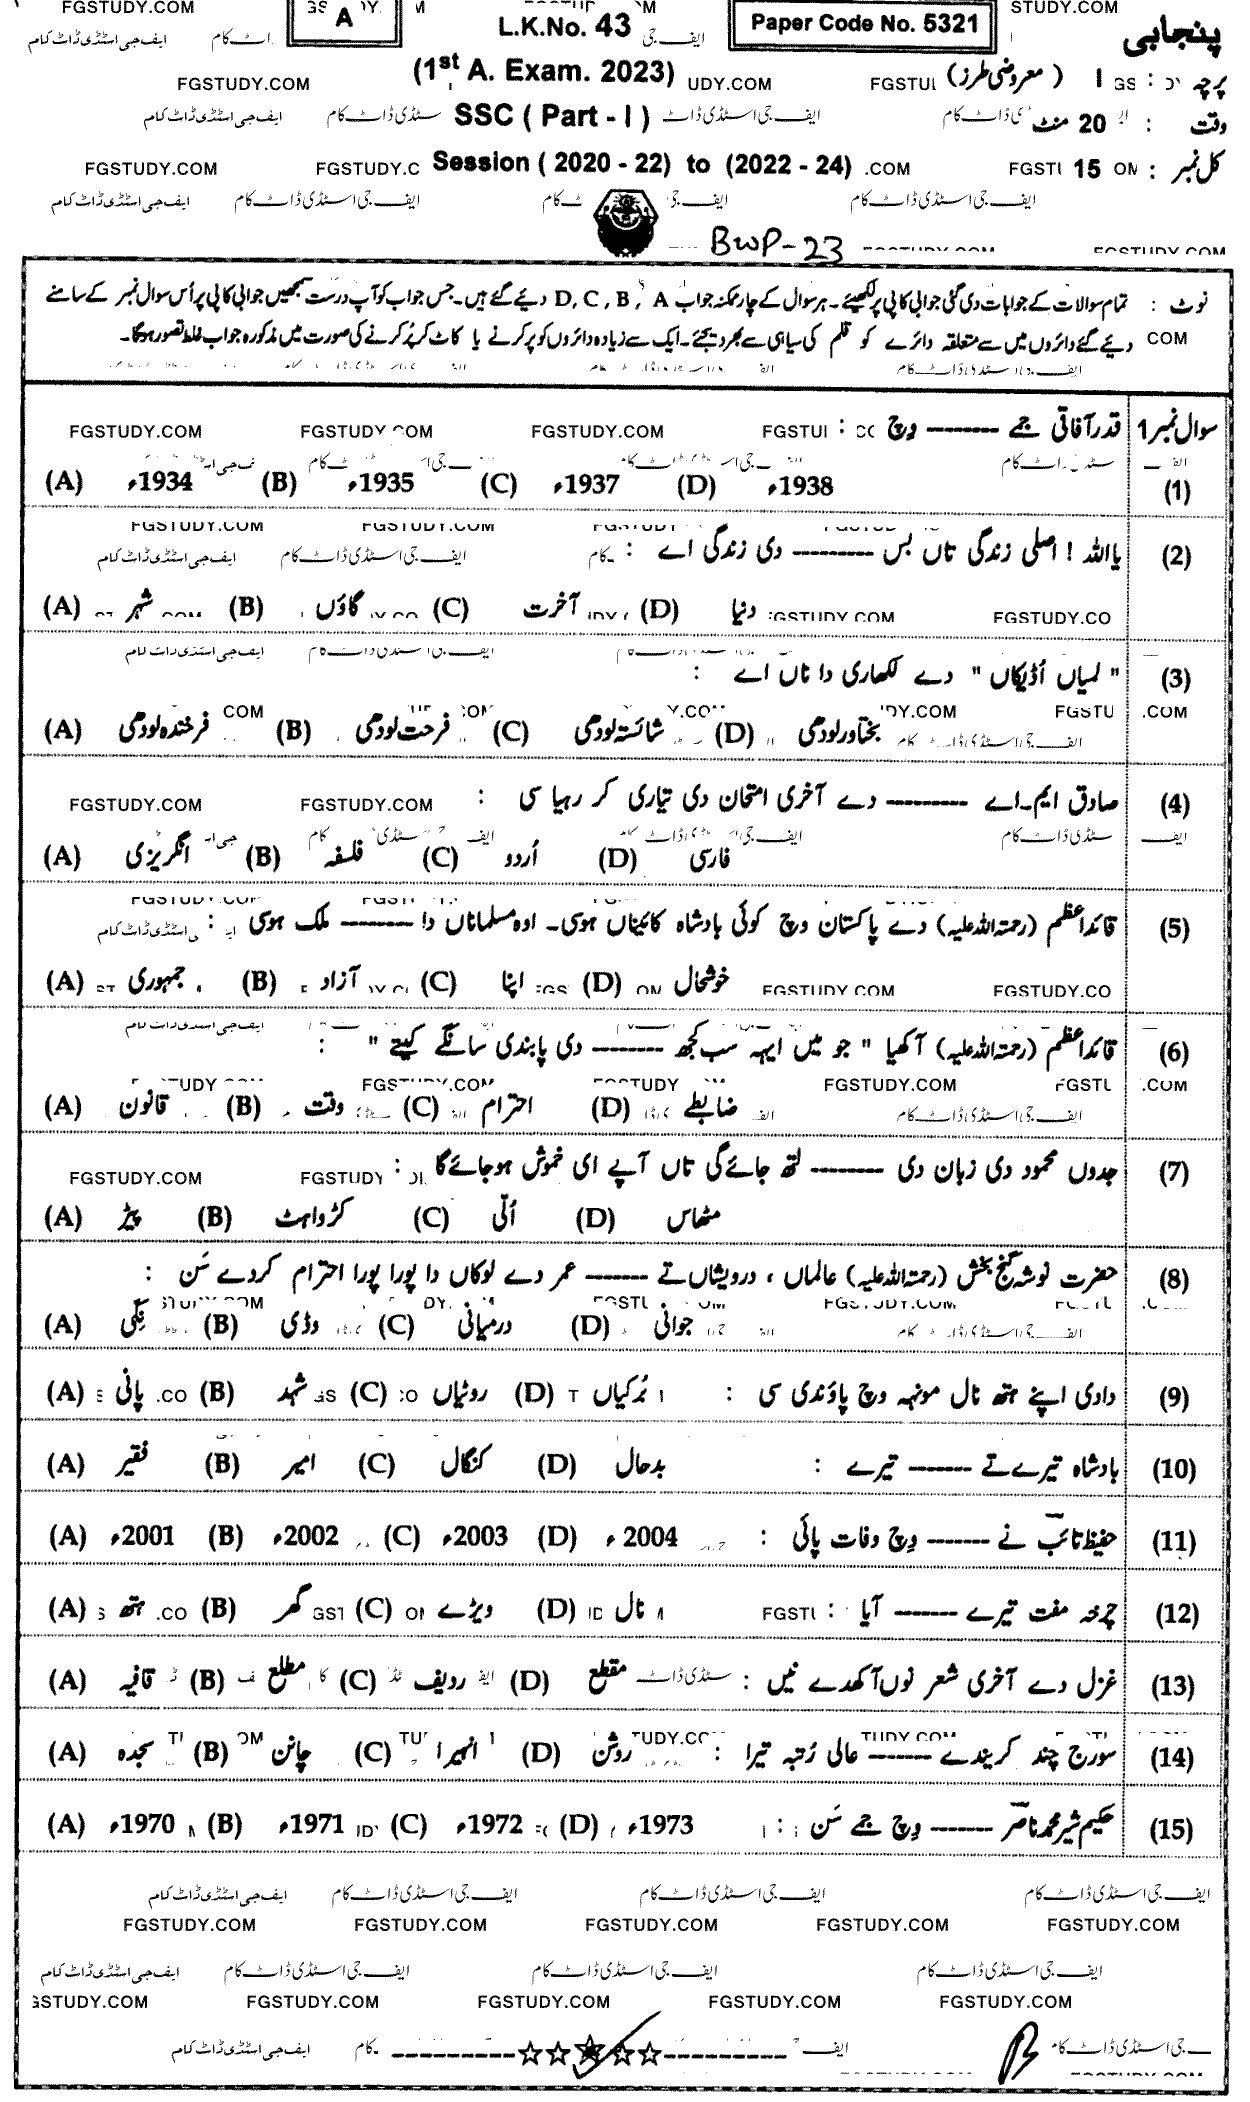 FGSTUDY.COM STUDY.COM
پنجابی A L.K.No. 43 Paper Code No. 5321
ایف جی اسٹڈی ڈاٹ کام
پرچہ : I ( معروضی طرز ) (1st A. Exam. 2023)
FGSTUDY.COM
وقت : 20 منٹ SSC ( Part - I )
ایف جی اسٹڈی ڈاٹ کام
کل نمبر : 15 Session ( 2020 - 22) to (2022 - 24)
FGSTUDY.COM
ایف جی اسٹڈی ڈاٹ کام
BWP-23 FGSTUDY.COM
نوٹ : تمام سوالات کے جوابات دی گئی جوابی کاپی پر لکھیئے۔ ہر سوال کے چار ممکنہ جواب A ، B ، C ، D دیئے گئے ہیں۔ جس جواب کو آپ درست سمجھیں جوابی کاپی پر اُس سوال نمبر کے سامنے
دیئے گئے دائروں میں سے متعلقہ دائرے کو قلم کی سیاہی سے بھر دیجئے۔ ایک سے زیادہ دائروں کو پر کرنے یا کاٹ کر پُر کرنے کی صورت میں مذکورہ جواب غلط تصور ہوگا۔
سوال نمبر 1 قدر آفاقی جمے -------- وچ :
(1) (A) 1934ء (B) 1935ء (C) 1937ء (D) 1938ء
(2) یا اللہ ! اصلی زندگی تاں بس --------- دی زندگی اے :
(A) شہر (B) گاؤں (C) آخرت (D) دنیا
(3) " لمیاں اُڈیکاں " دے لکھاری دا ناں اے :
(A) فرخندہ لودھی (B) فرحت لودھی (C) شائستہ لودھی (D) بختاور لودھی
(4) صادق ایم۔اے --------- دے آخری امتحان دی تیاری کر رہیا سی :
(A) انگریزی (B) فلسفہ (C) اُردو (D) فارسی
(5) قائداعظم (رحمۃ اللہ علیہ) دے پاکستان وچ کوئی بادشاہ کائیناں ہوسی۔ اوہ مسلماناں دا ------- ملک ہوسی :
(A) جمہوری (B) آزاد (C) اپنا (D) خوشحال
(6) قائداعظم (رحمۃ اللہ علیہ) آکھیا " جو میں ایہہ سب کجھ -------- دی پابندی سانگے کیتے " :
(A) قانون (B) وقت (C) احترام (D) ضابطے
(7) جدوں محمود دی زبان دی -------- لتھ جائے گی تاں آپے ای خموش ہو جائے گا :
(A) پیڑ (B) کڑواہٹ (C) اُلّی (D) مٹھاس
(8) حضرت نوشہ گنج بخش (رحمۃ اللہ علیہ) عالماں ، درویشاں تے ------- عمر دے لوکاں دا پورا پورا احترام کردے سَن :
(A) نِکّی (B) وڈی (C) درمیانی (D) جوانی
(9) دادی اپنے ہتھ نال مونہہ وچ پاؤندی سی : (A) پانی (B) شہد (C) روٹیاں (D) بُرکیاں
(10) بادشاہ تیرے تے ------- تیرے : (A) فقیر (B) امیر (C) کنگال (D) بدحال
(11) حفیظ تائبؔ نے ------- وِچ وفات پائی : (A) 2001ء (B) 2002ء (C) 2003ء (D) 2004ء
(12) چرخہ مفت تیرے ------- آیا : (A) ہتھ (B) گھر (C) ویڑے (D) نال
(13) غزل دے آخری شعر نوں آکھدے نیں : (A) قافیہ (B) مطلع (C) ردیف (D) مقطع
(14) سورج چند کریندے ------- عالی رُتبہ تیرا : (A) سجدہ (B) چانن (C) انھیرا (D) روشن
(15) حکیم شیر محمد ناصرؔ ------- وِچ جمے سَن : (A) 1970ء (B) 1971ء (C) 1972ء (D) 1973ء
ایف جی اسٹڈی ڈاٹ کام
FGSTUDY.COM FGSTUDY.COM FGSTUDY.COM FGSTUDY.COM FGSTUDY.COM
ایف جی اسٹڈی ڈاٹ کام
GSTUDY.COM FGSTUDY.COM FGSTUDY.COM FGSTUDY.COM FGSTUDY.COM
ایف جی اسٹڈی ڈاٹ کام